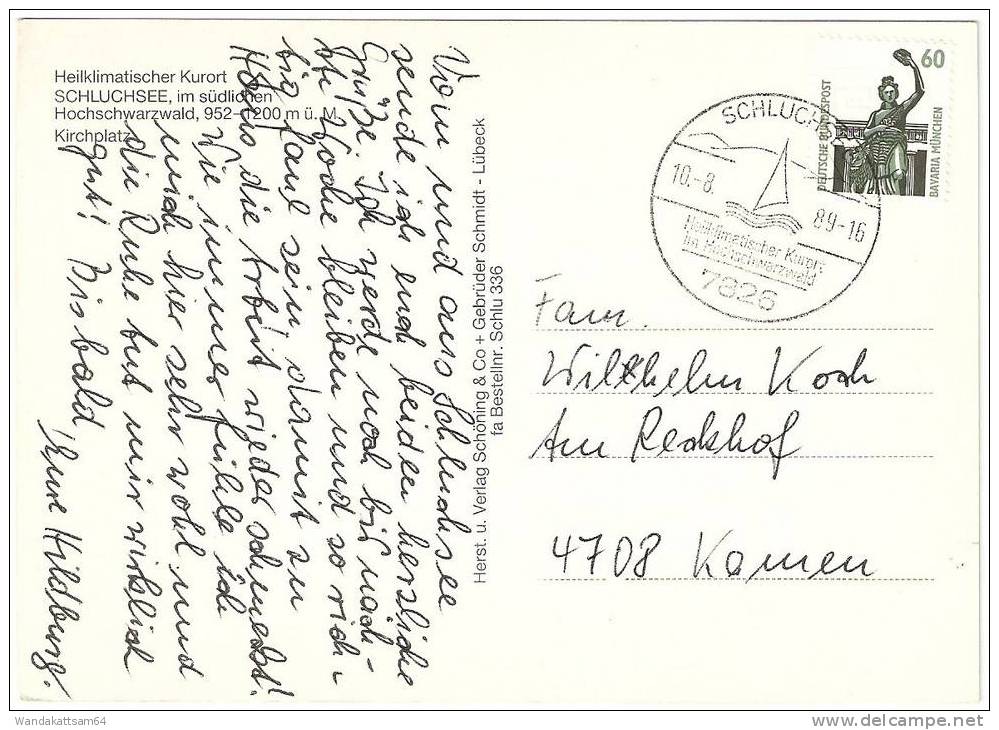 Heilklimatischer Kurort
SCHLUCHSEE, im südlichen
Hochschwarzwald, 952–1200 m ü. M.
Kirchplatz
Vom und aus Schluchsee
sende ich euch beiden herzliche
Grüße. Ich werde noch bis näch-
ste Woche bleiben und so rich-
tig faul sein, damit zu
Haus die Arbeit wieder schmeckt!
Wie immer fühle ich
mich hier sehr wohl und
die Ruhe tut mir wirklich
gut! Bis bald
Eure Hildburg.
Herst. u. Verlag Schöning & Co + Gebrüder Schmidt - Lübeck
fa Bestellnr. Schlu 336
SCHLUCHS
10.-8.
89-16
Heilklimatischer Kurort
im Hochschwarzwald
7826
60
DEUTSCHE BUNDESPOST
BAVARIA MÜNCHEN
Fam.
Wilhelm Koch
Am Reckhof
4708 Kamen
Wandakattsam64
www.delcampe.net